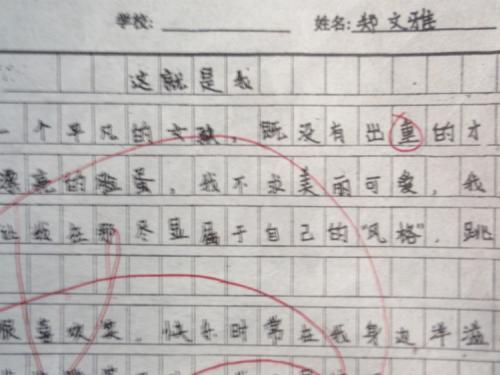 学校: 姓名: 郑文雅
这就是我
一个平凡的女孩，既没有出重的才
漂亮的脸蛋，我不求美丽可爱，我
让我在那尽显属于自己的“风格”，跳
很喜欢笑，快乐时常在我身边洋溢